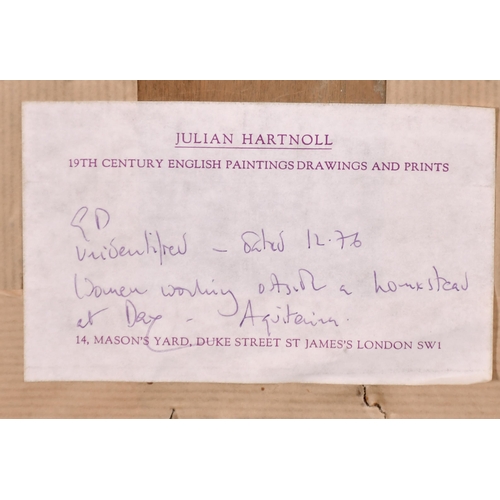 JULIAN HARTNOLL
19TH CENTURY ENGLISH PAINTINGS DRAWINGS AND PRINTS
GD
Unidentified – dated 12.76
Women working outside a homestead
at Dax – Aquitaine.
14, MASON'S YARD, DUKE STREET ST JAMES'S LONDON SW1